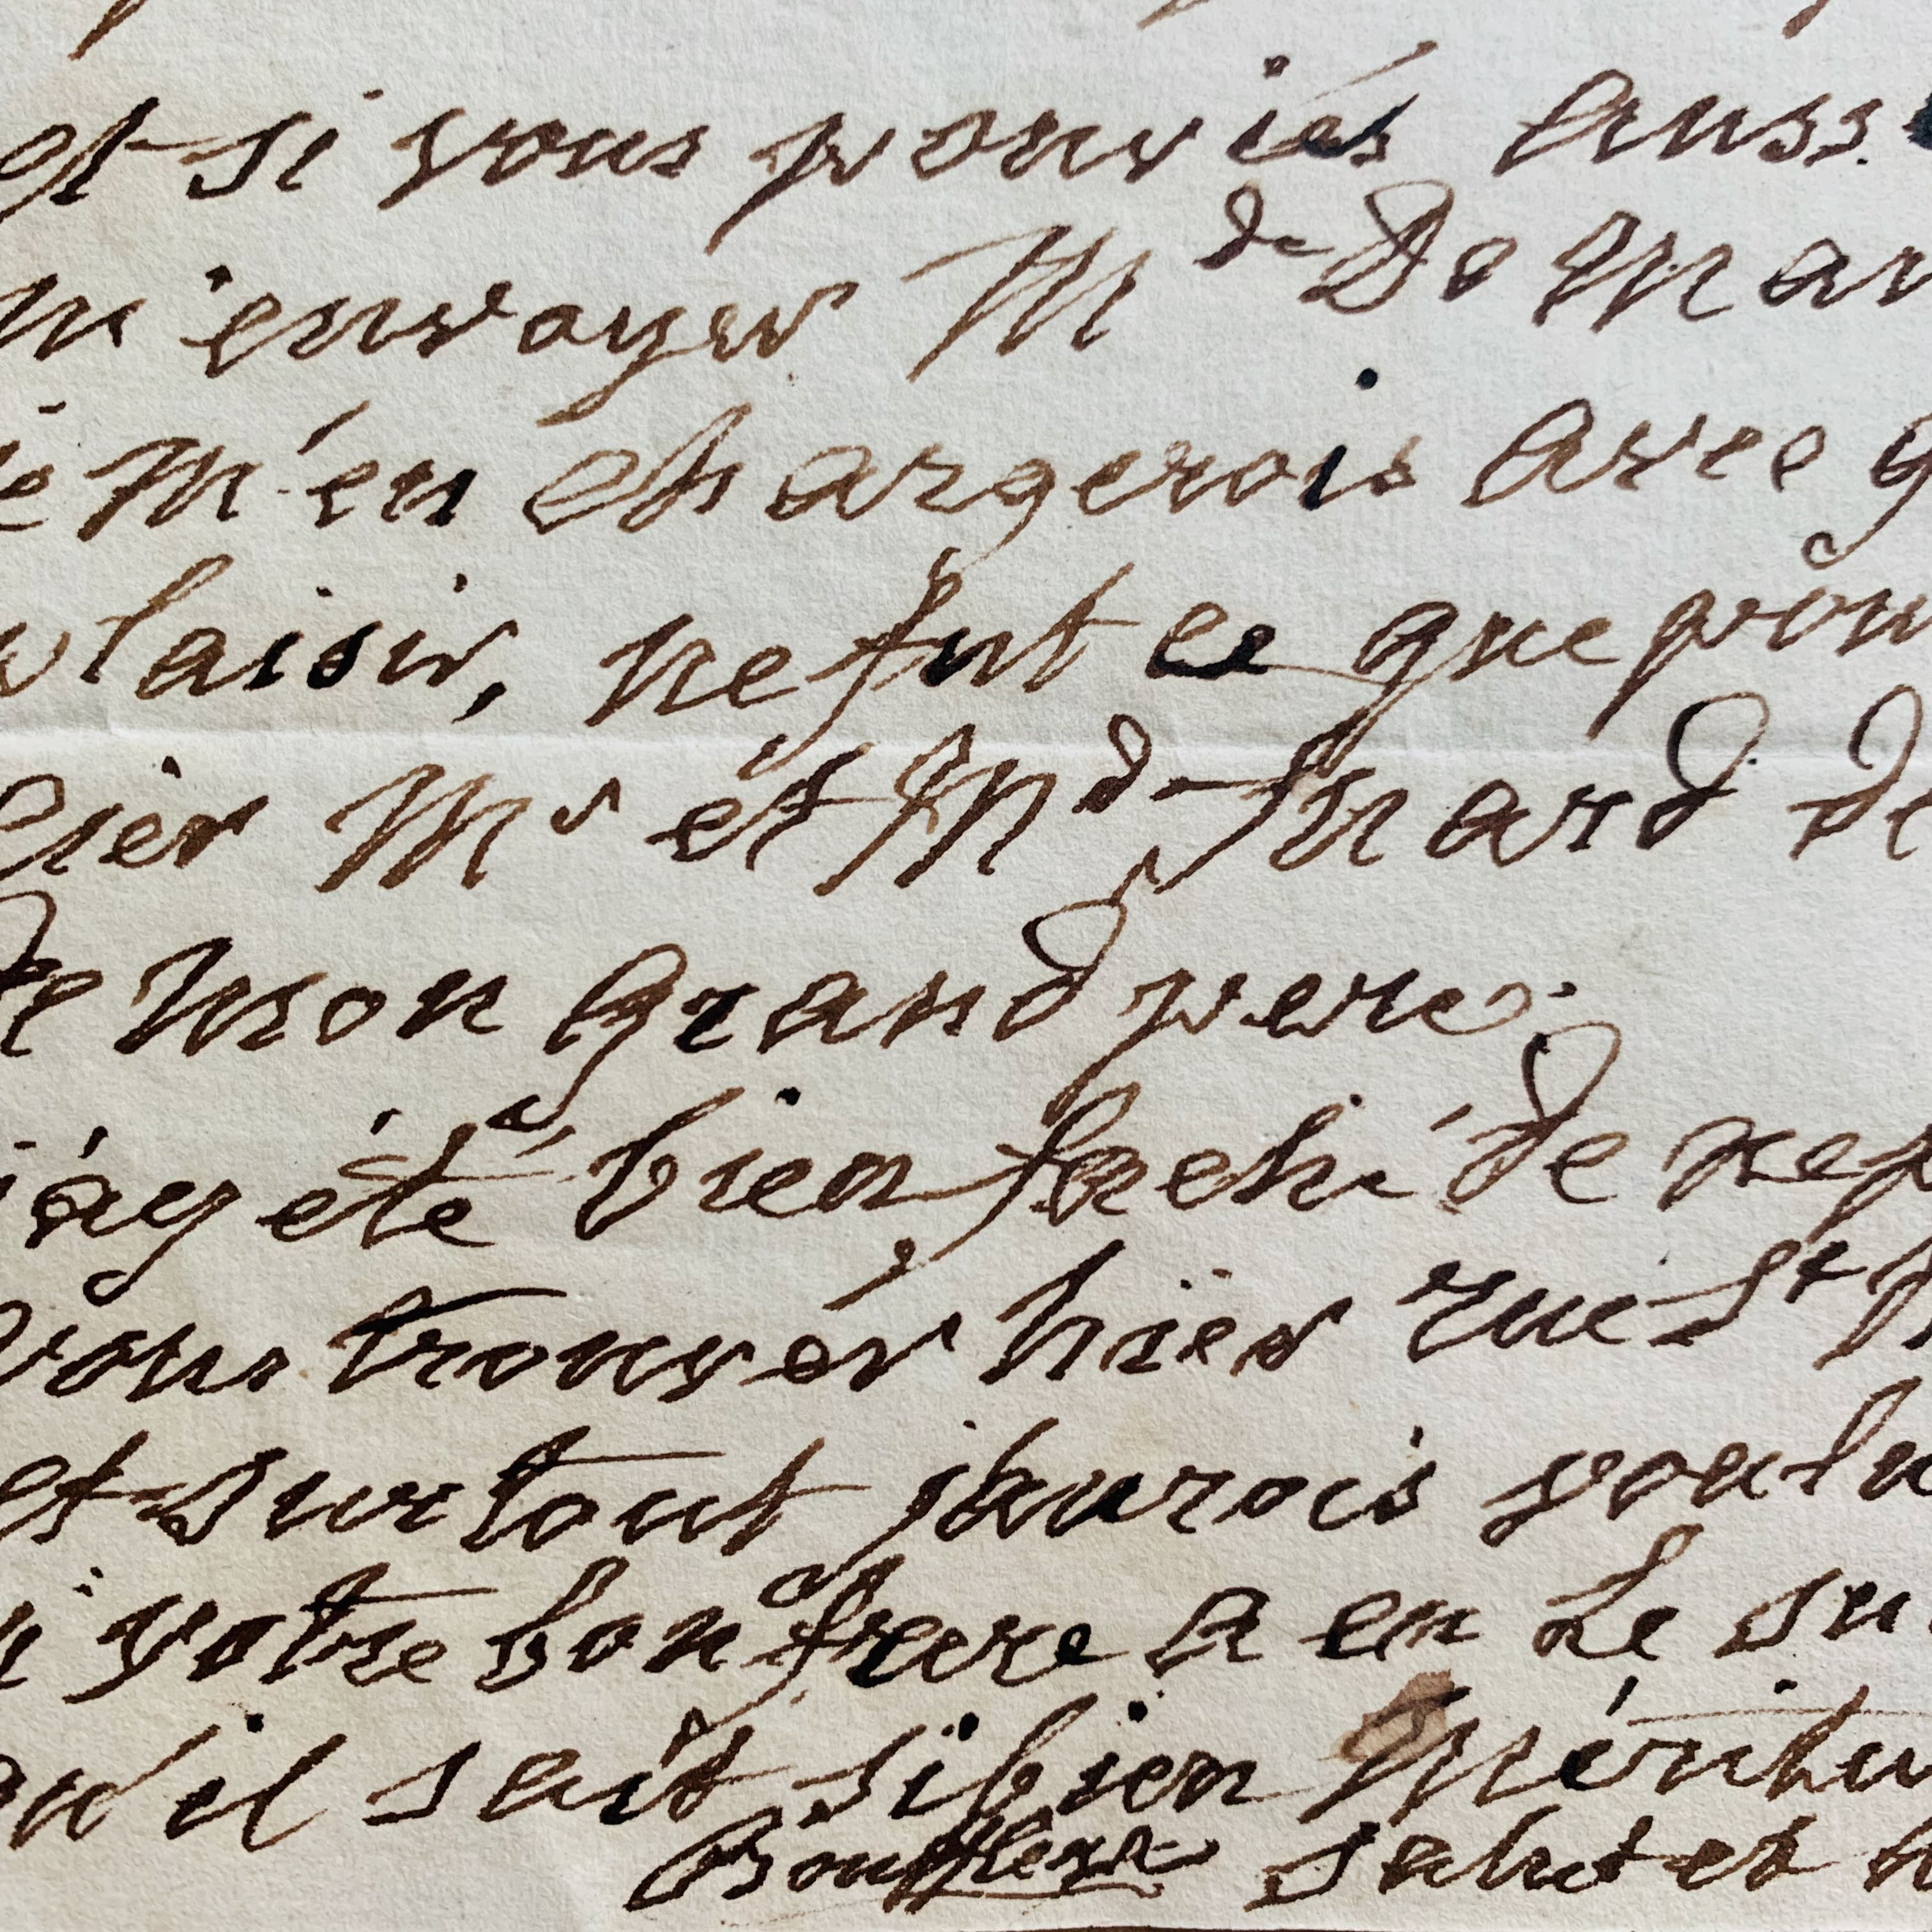 et si vous pouviés auss
m'envoyer Mde De Mar
je m'en chargerois avec g
plaisir, ne fut ce que pour
cier Mr et Md Imard de
de mon grand pere.
j'ay été bien faché de ne p
vous trouver hier rue St h
et surtout j'aurois voulu
votre bon frere a en Le su
qu'il sait si bien mériter
Boufflers salut et